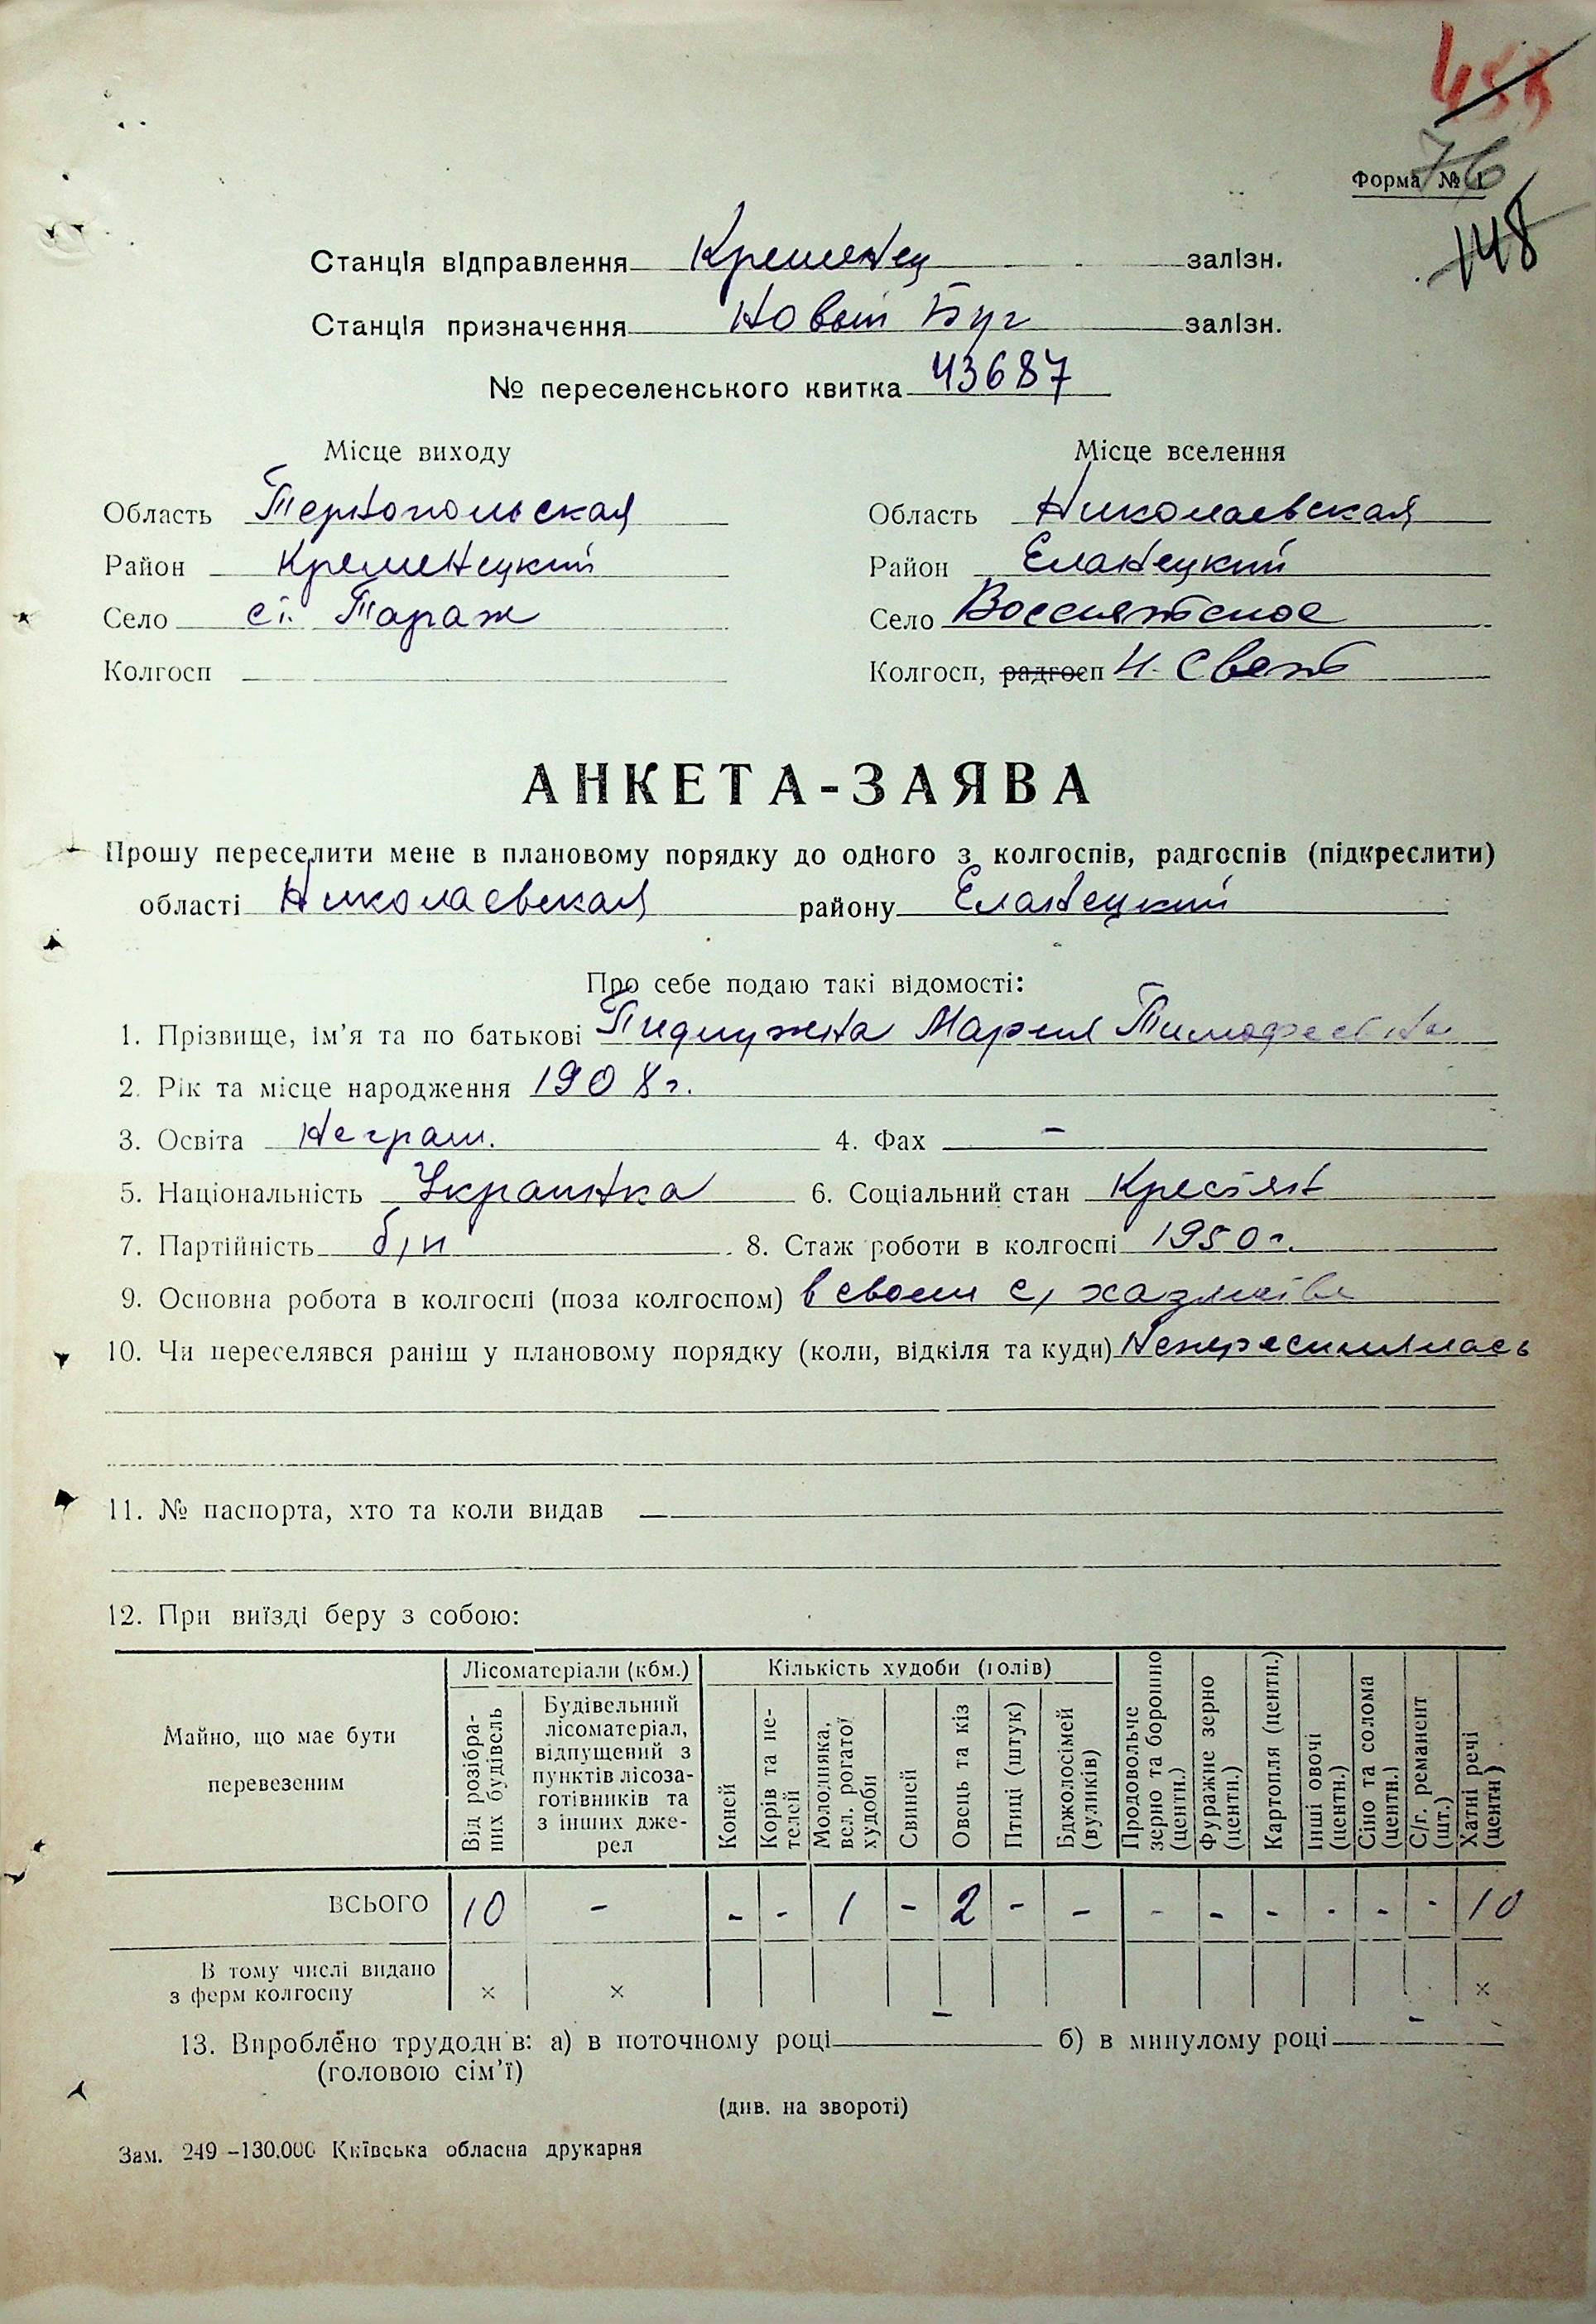 Форма № 1
76
148
Станція відправлення Кременец залізн.
Станція призначення Новый Буг залізн.
№ переселенського квитка 43687
Місце виходу
Місце вселення
Область Тернопольская
Область Николаевская
Район Кременецкий
Район Еланецкий
Село ст. Тараж
Село Воссиятское
Колгосп
Колгосп, радгосп Н. Свет
АНКЕТА-ЗАЯВА
Прошу переселити мене в плановому порядку до одного з колгоспів, радгоспів (підкреслити)
області Николаевская району Еланецкий
Про себе подаю такі відомості:
1. Прізвище, ім'я та по батькові Мария Тимофеевна
2. Рік та місце народження 1908 г.
3. Освіта Неграм. 4. Фах –
5. Національність Украинка 6. Соціальний стан Крестян
7. Партійність б/п 8. Стаж роботи в колгоспі 1950 г.
9. Основна робота в колгоспі (поза колгоспом) в своем с/
10. Чи переселявся раніш у плановому порядку (коли, відкіля та куди) Непереселялась
11. № паспорта, хто та коли видав —
12. При виїзді беру з собою:
Майно, що має бути перевезеним
Лісоматеріали (кбм.)
Кількість худоби (голів)
Від розібраних будівель
Будівельний лісоматеріал, відпущений з пунктів лісозаготівників та з інших джерел
Коней
Корів та нетелей
Молодняка, вел. рогатої худоби
Свиней
Овець та кіз
Птиці (штук)
Бджолосімей (вуликів)
Продовольче зерно та борошно (центн.)
Фуражне зерно (центн.)
Картопля (центн.)
Інші овочі (центн.)
Сіно та солома (центн.)
С/г. реманент (шт.)
Хатні речі (центн)
ВСЬОГО 10 – - - 1 – 2 – – - - - - - - 10
В тому числі видано
з ферм колгоспу × × ×
13. Вироблено трудоднів: а) в поточному році – б) в минулому році –
(головою сім'ї)
(див. на звороті)
Зам. 249 –130.000 Київська обласна друкарня